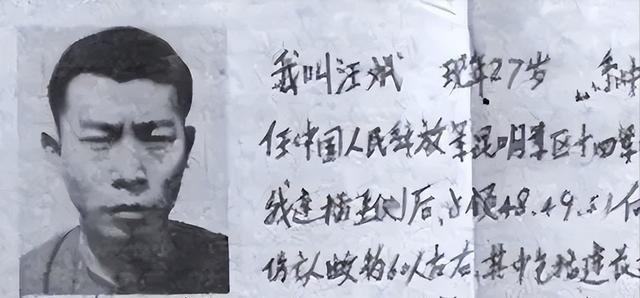 我叫汪斌 现年27岁 系
任中国人民解放军昆明军区十四军
我连插 后,占领48.49.51
伤 约60人左右,其中包括连长